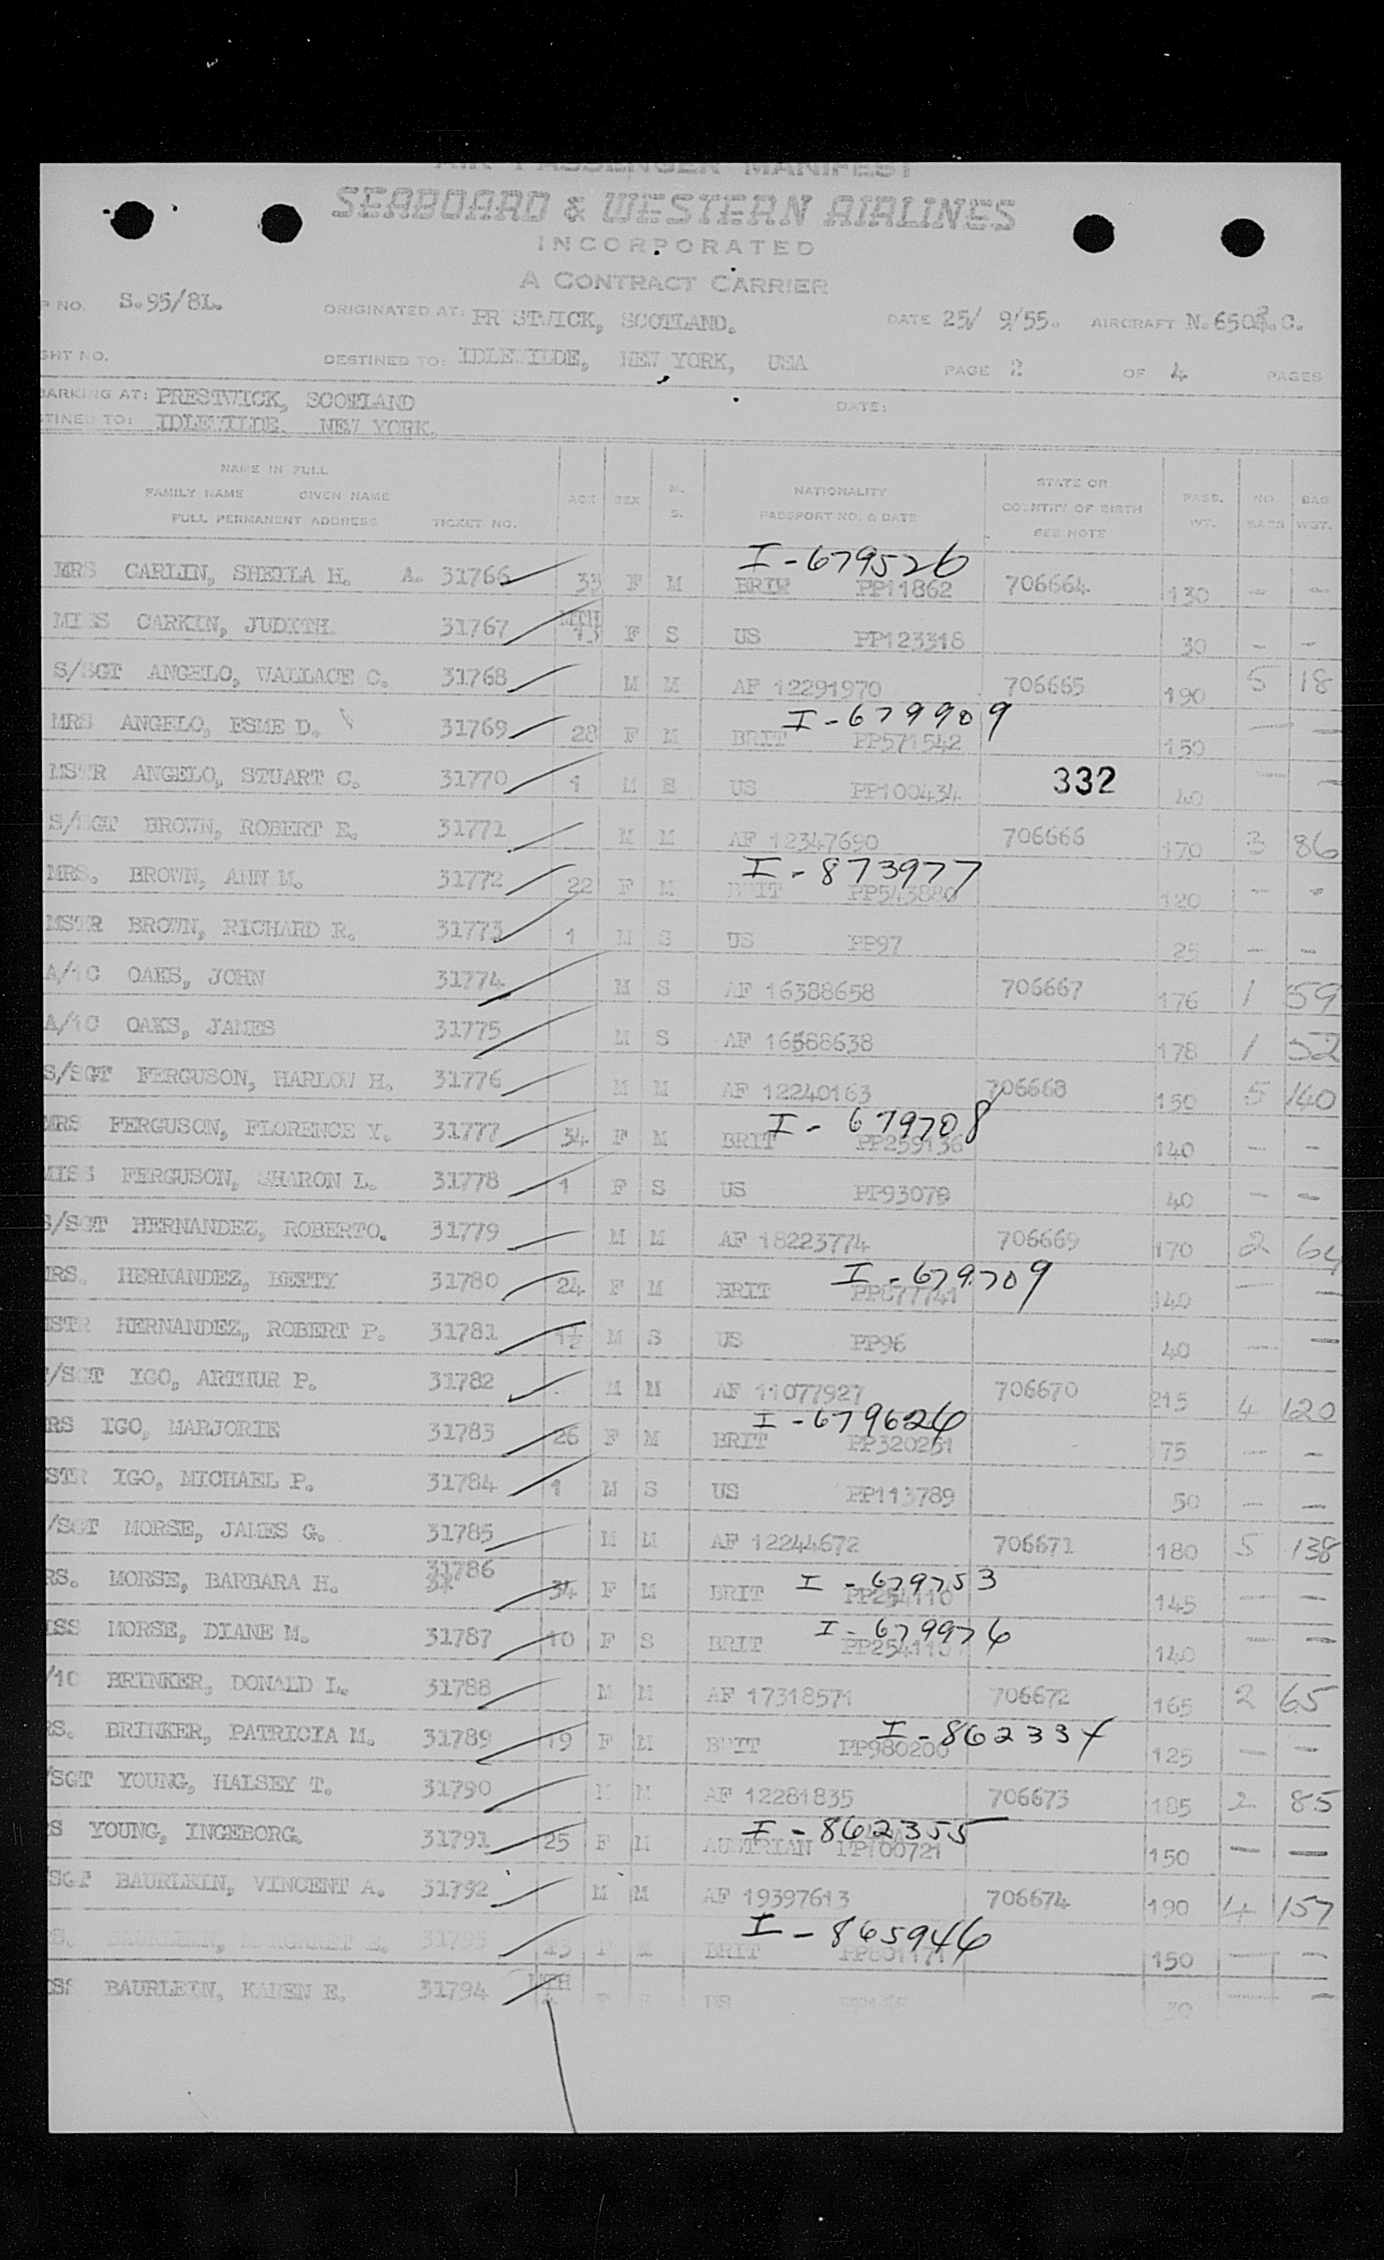 AIR PASSENGER MANIFEST
SEABOARD & WESTERN AIRLINES
INCORPORATED
A CONTRACT CARRIER
P NO. S.95/8L. ORIGINATED AT: PR STWICK, SCOTLAND. DATE 25/ 9/55. AIRCRAFT N.6503.C.
GHT NO. DESTINED TO: IDLEWILDE, NEW YORK, USA PAGE 2 OF 4 PAGES
BARKING AT: PRESTWICK, SCOTLAND DATE:
TINED TO: IDLEWILDE. NEW YORK.
NAME IN FULL
FAMILY NAME GIVEN NAME
FULL PERMANENT ADDRESS TICKET NO. AGE SEX M. S. NATIONALITY PASSPORT NO. & DATE STATE OR COUNTRY OF BIRTH SEE NOTE PASS. WT. NO. BAGS BAG WGT.
I-679526
MRS CARLIN, SHEILA H. A. 31766 33 F M BRIT PP11862 706664 130 - -
MISS CARKIN, JUDITH 31767 MTH F S US PP123318 30 - -
S/SGT ANGELO, WALLACE C. 31768 M M AF 12291970 706665 190 5 18
I-679909
MRS ANGELO, ESME D. 31769 28 F M BRIT PP571542 150 - -
MSTR ANGELO, STUART C. 31770 1 M S US PP100434 332 40 - -
S/SGT BROWN, ROBERT E. 31771 M M AF 12347690 706666 170 3 86
I-873977
MRS. BROWN, ANN M. 31772 22 F M BRIT PP543880 120 - -
MSTR BROWN, RICHARD R. 31773 1 M S US PP97 25 - -
A/1C OAKS, JOHN 31774 M S AF 16388658 706667 176 1 59
A/1C OAKS, JAMES 31775 M S AF 16388638 178 1 52
S/SGT FERGUSON, HARLOW H. 31776 M M AF 12240163 706668 150 5 140
I-679708
MRS FERGUSON, FLORENCE Y. 31777 34 F M BRIT PP259136 140 - -
MISS FERGUSON, SHARON L. 31778 1 F S US PP93079 40 - -
S/SGT HERNANDEZ, ROBERTO. 31779 M M AF 18223774 706669 170 2 64
I-679709
MRS. HERNANDEZ, BETTY 31780 24 F M BRIT PP877741 140 - -
MSTR HERNANDEZ, ROBERT P. 31781 1½ M S US PP96 40 - -
/SGT IGO, ARTHUR P. 31782 M M AF 11077927 706670 215 4 120
I-679626
RS IGO, MARJORIE 31783 26 F M BRIT PP320251 75 - -
STR IGO, MICHAEL P. 31784 1 M S US PP113789 50 - -
/SGT MORSE, JAMES G. 31785 M M AF 12244672 706671 180 5 138
I-679753
RS. MORSE, BARBARA H. 31786 34 F M BRIT PP254110 145 - -
I-679976
ISS MORSE, DIANE M. 31787 10 F S BRIT PP254110 140 - -
/1C BRINKER, DONALD L. 31788 M M AF 17318571 706672 165 2 65
I-862334
RS. BRINKER, PATRICIA M. 31789 19 F M BRIT PP980200 125 - -
/SGT YOUNG, HALSEY T. 31790 M M AF 12281835 706673 185 2 85
I-862355
S YOUNG, INGEBORG. 31791 25 F M AUSTRIAN PP100721 150 - -
SGT BAURLEIN, VINCENT A. 31792 M M AF 19397613 706674 190 4 157
I-865946
S. BAURLEIN, MARGARET E. 31793 F M BRIT PP801171 150 - -
SS BAURLEIN, KAREN E. 31794 MTH F S US 30 - -